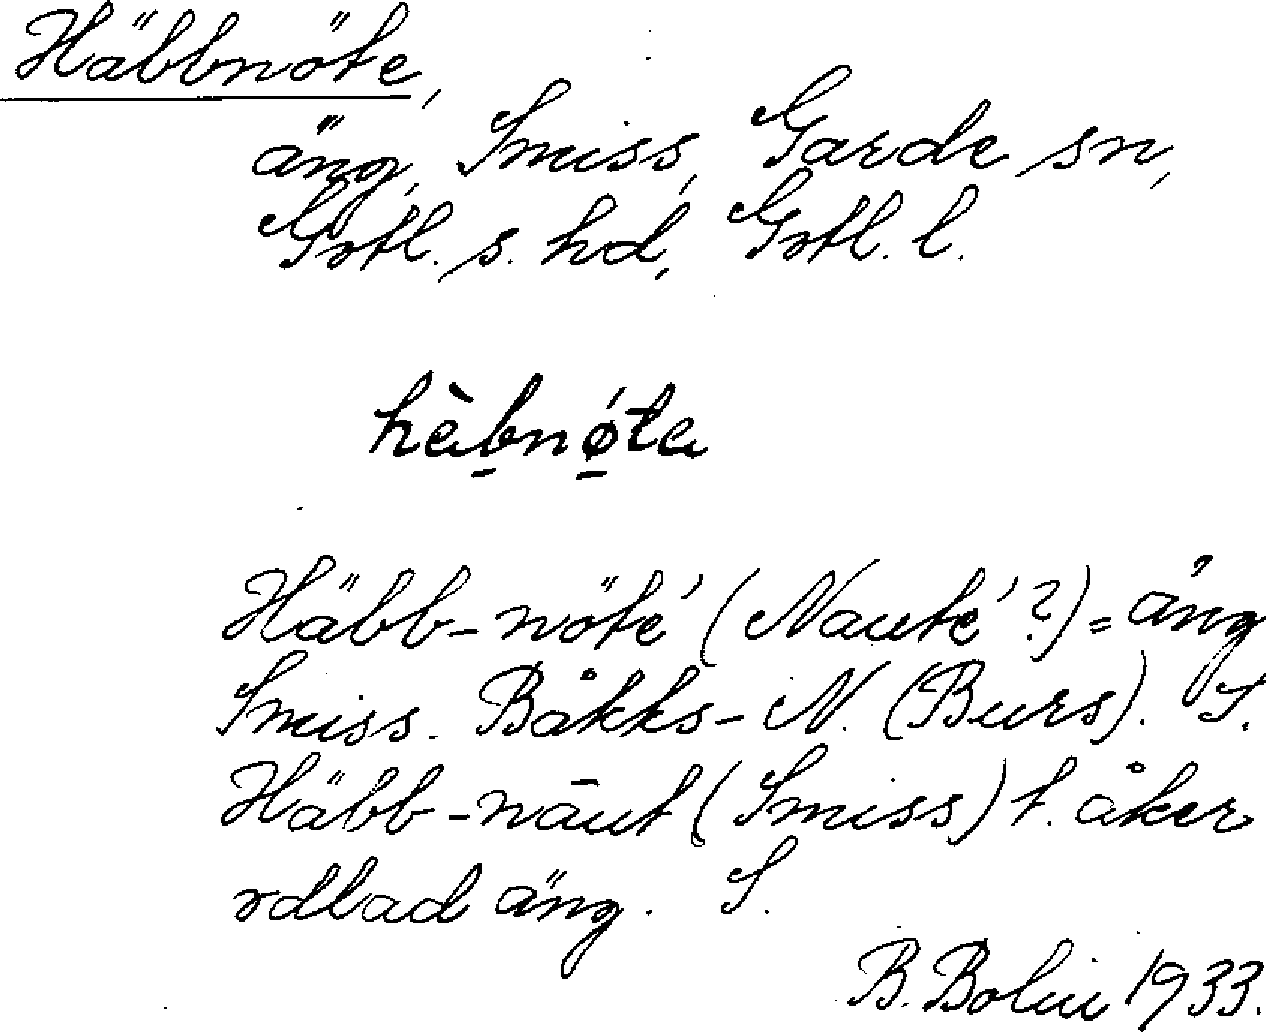 Häbbnöte,
äng, Smiss, Garde sn,
Gotl. s. hd, Gotl. l.
hàbnǿta
Häbb-nöté (Nauté?) = äng
Smiss. Båkks-N. (Burs). S.
Häbb-nāut (Smiss) t. åker
odlad äng. S.
B. Bolin 1933.